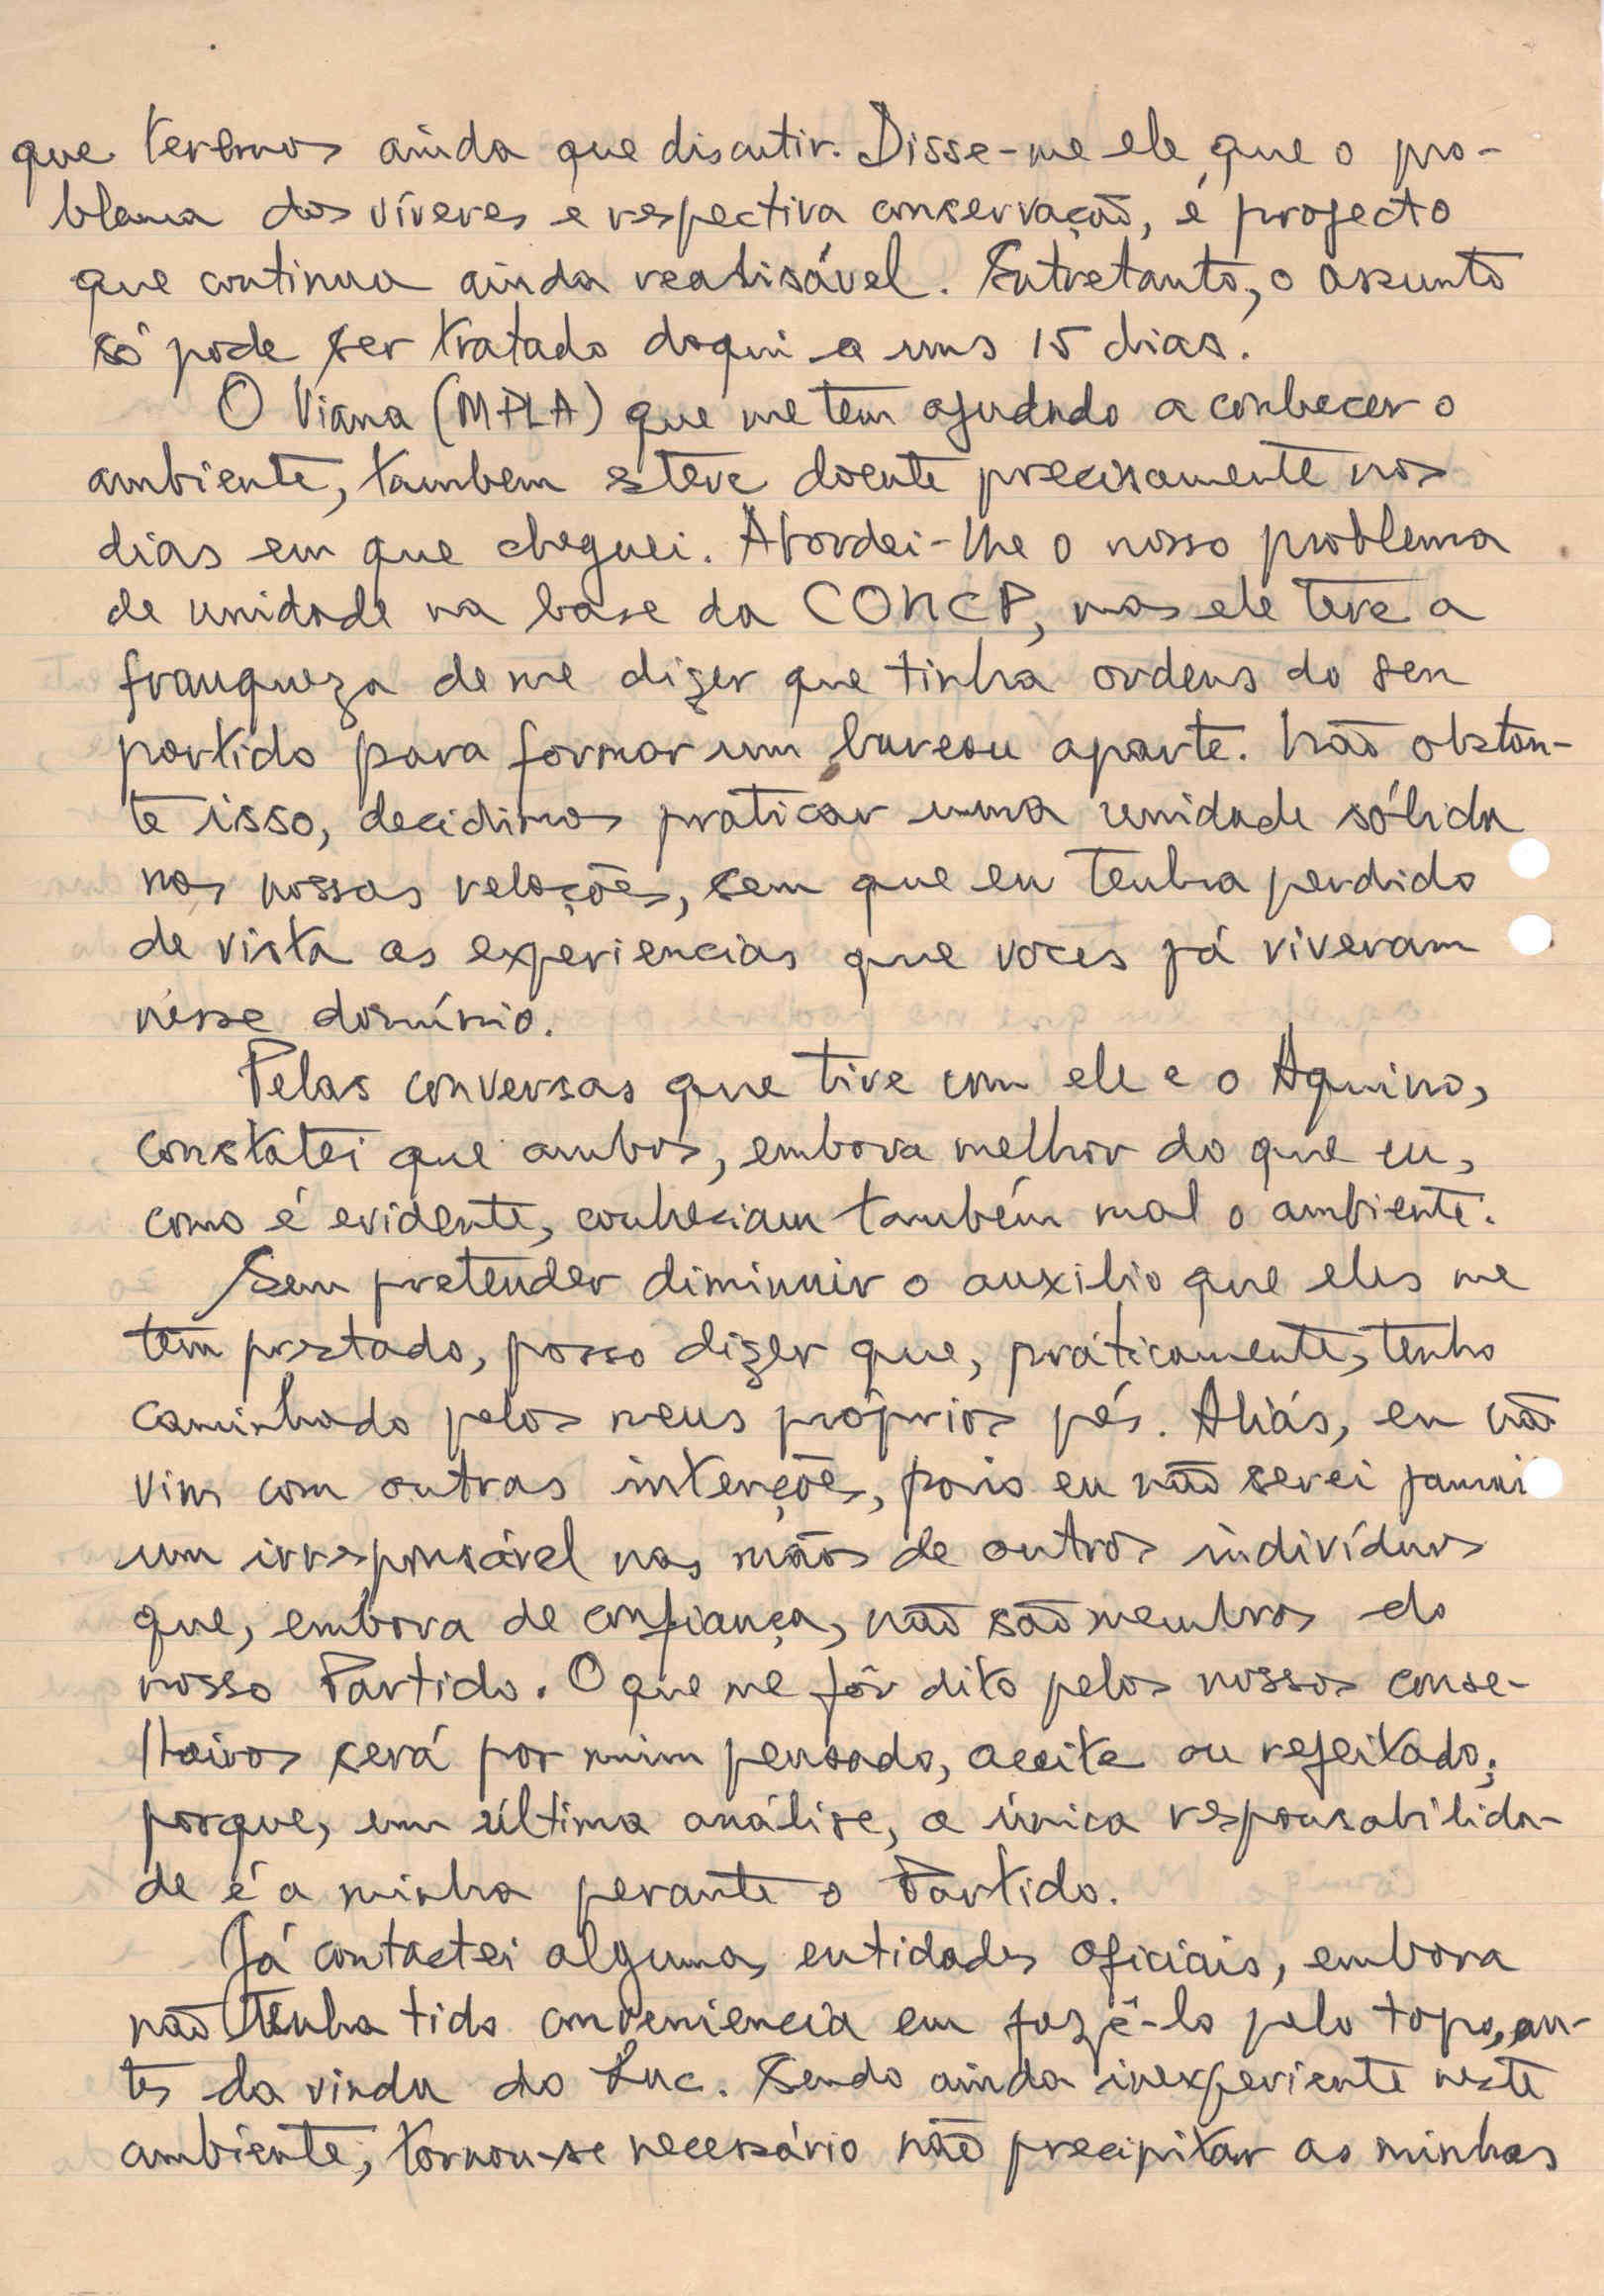 que teremos ainda que discutir. Disse-me ele que o pro-
blema dos víveres e respectiva conservação, é projecto
que continua ainda realisável. Entretanto, o assunto
só pode ser tratado daqui a uns 15 dias.
O Viana (MPLA) que me tem ajudado a conhecer o
ambiente, tambem esteve doente precisamente nos
dias em que cheguei. Abordei-lhe o nosso problema
de unidade na base da CONCP, mas ele teve a
franqueza de me dizer que tinha ordens do seu
partido para formar um bureau aparte. Não obstan-
te isso, decidimos praticar uma unidade sólida
nas nossas relações, sem que eu tenha perdido
de vista as experiencias que voces já viveram
nesse domínio.
Pelas conversas que tive com ele e o Aquino,
constatei que ambos, embora melhor do que eu,
como é evidente, conheciam também mal o ambiente.
Sem pretender diminuir o auxilio que eles me
têm prestado, posso dizer que, práticamente, tenho
caminhado pelos meus próprios pés. Aliás, eu não
vim com outras intenções, pois eu não serei jamai
um irresponsável nas mãos de outros indivíduos
que, embora de confiança, não são membros do
nosso Partido. O que me fôr dito pelos nossos conse-
lheiros será por mim pensado, aceite ou rejeitado;
porque, em última análise, a única responsabilida-
de é a minha perante o Partido.
Já contactei algumas entidades oficiais, embora
não tenha tido conveniencia em fazê-lo pelo topo, an-
tes da vinda do Luc. Sendo ainda inexperiente neste
ambiente, tornou-se necessário não precipitar as minhas